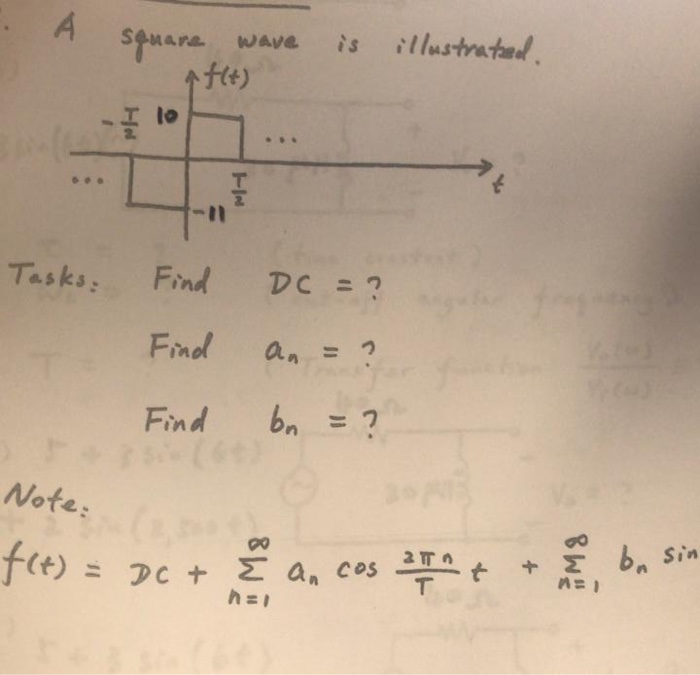 A square wave is illustrated.
f(t)
-T/2 10 ...
... T/2 t
-11
Tasks: Find DC = ?
Find an = ?
Find bn = ?
Note:
f(t) = DC + ∞ Σ n=1 an cos 2πn/T t + ∞ Σ n=1 bn sin